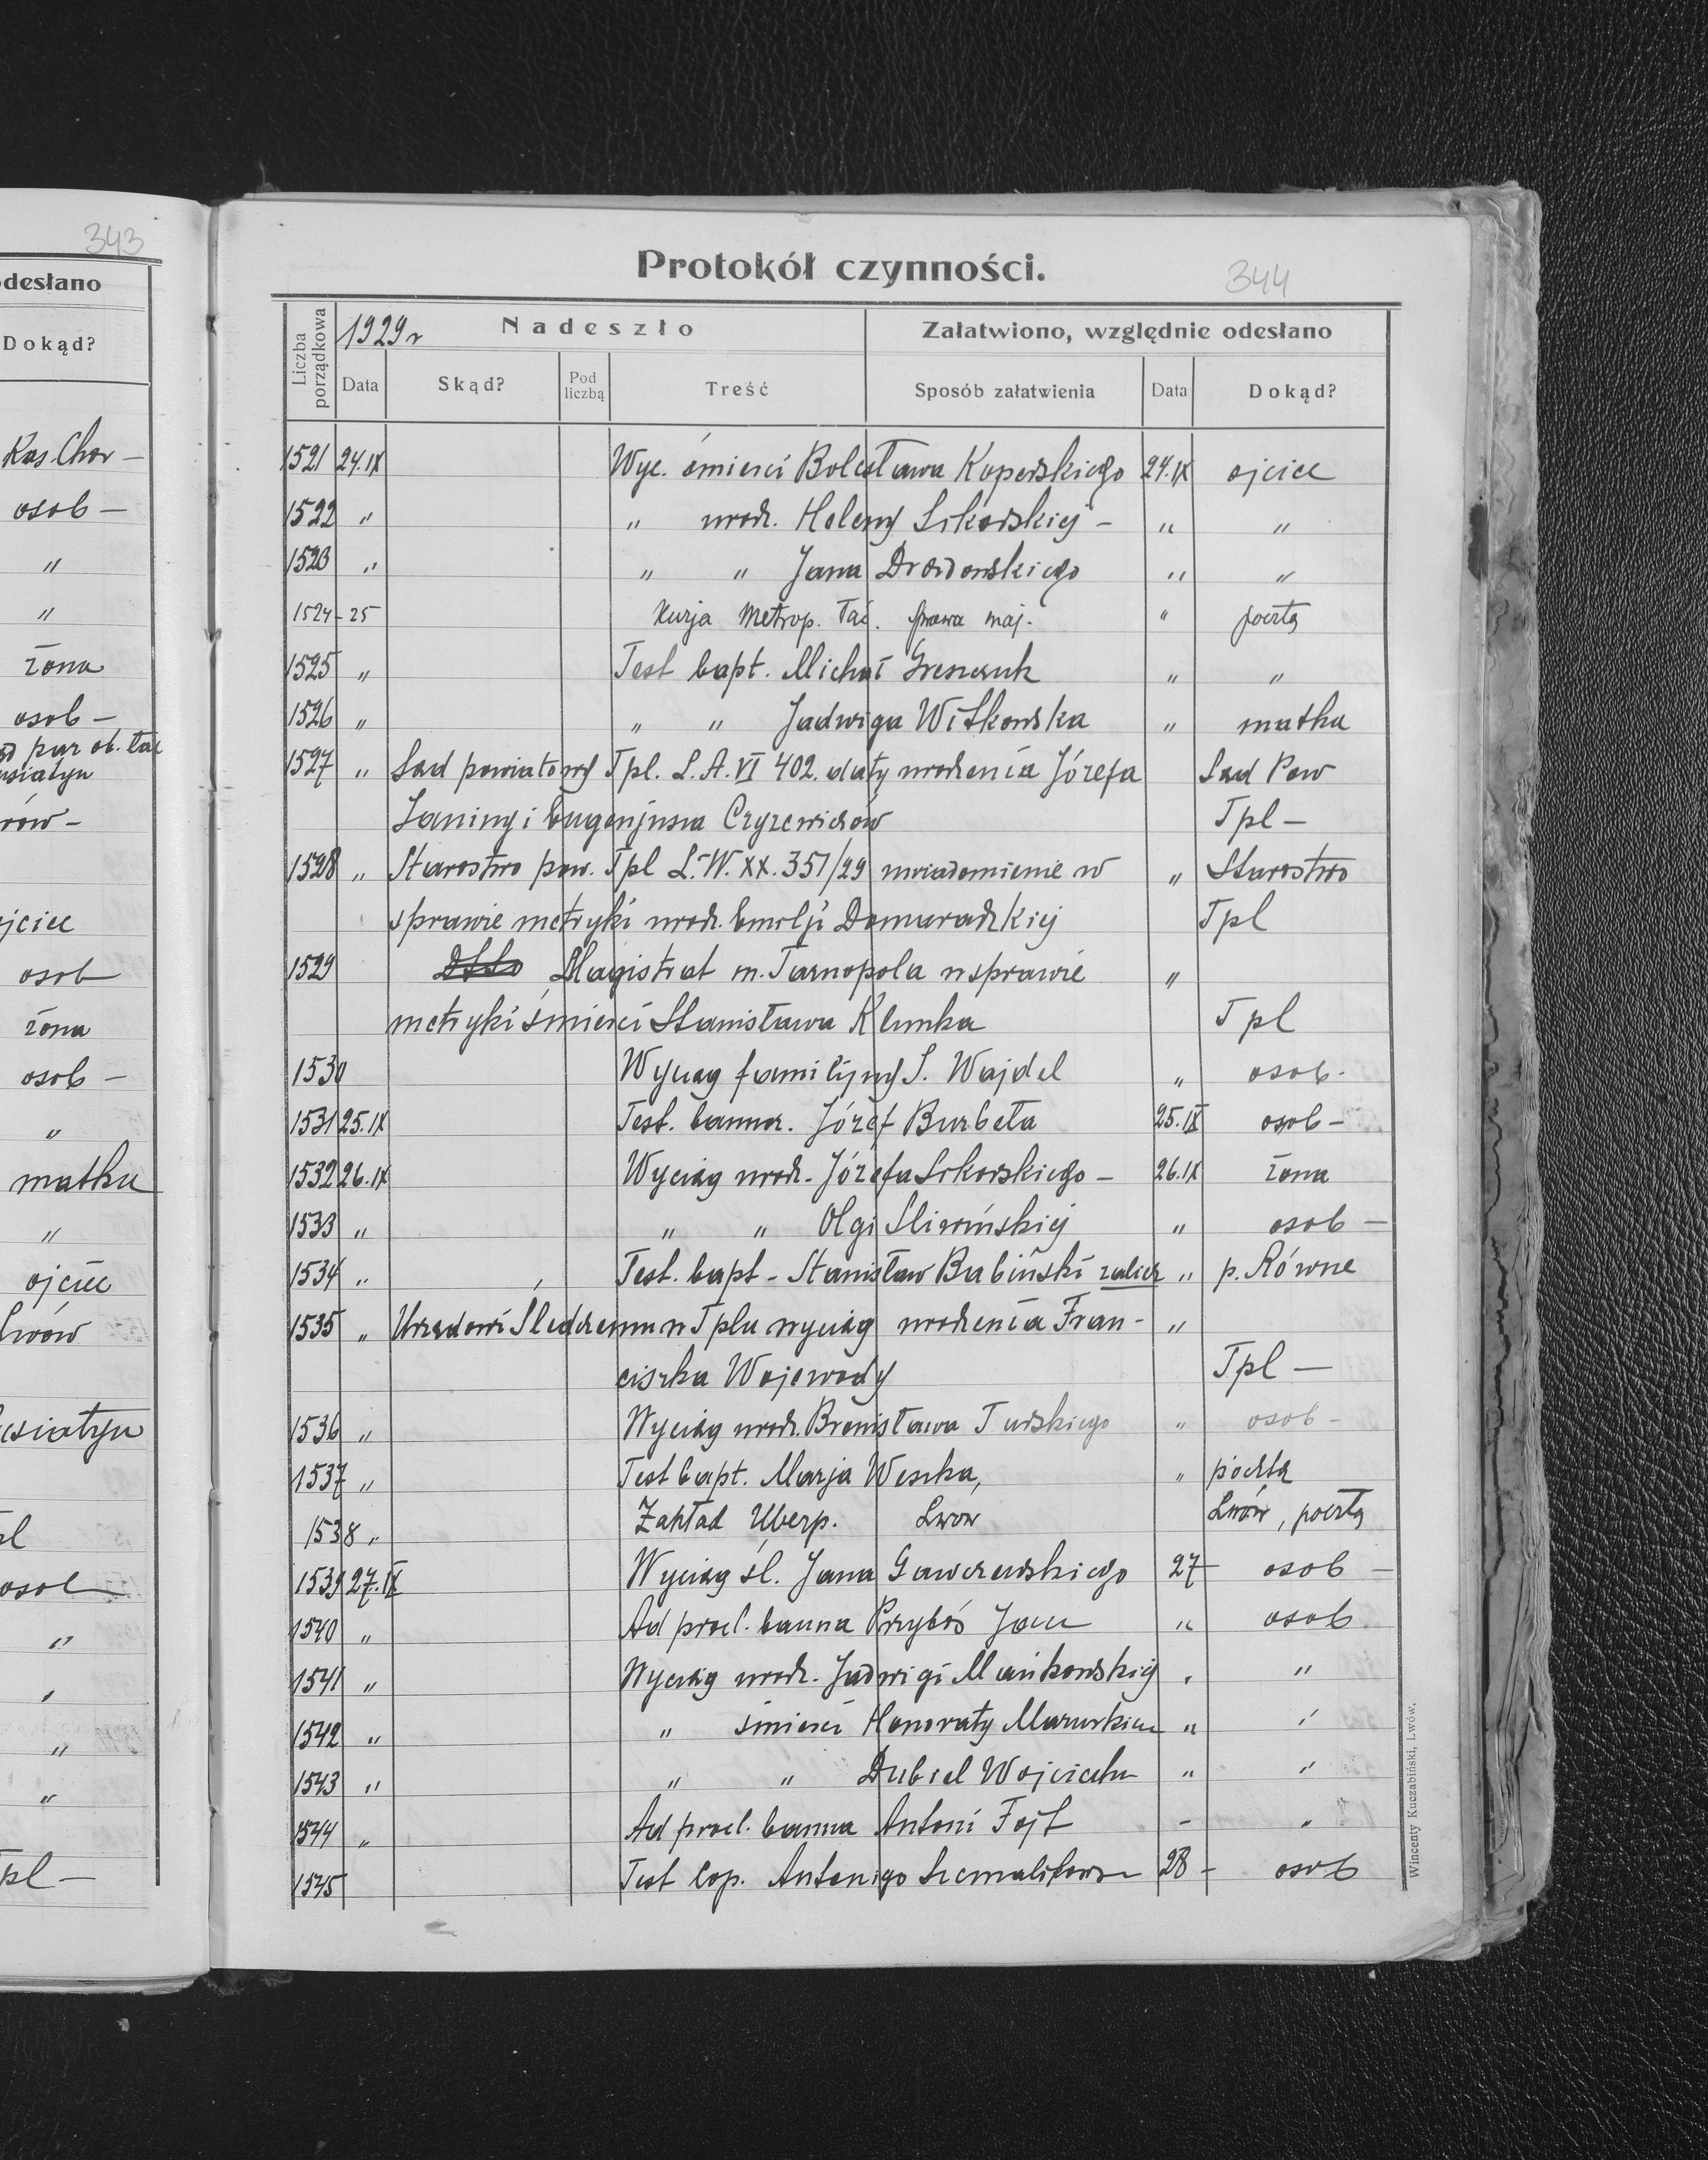 343
odesłano
Dokąd?
Kas. Chor -
osob -
"
"
żona
osob -
par ob. łac
rów -
ojciec
osob
żona
osob -
"
matka
"
ojciec
Lwów
osob
"
"
"
"
Tpl -
Protokół czynności.
344
Liczba porządkowa
1929 r
Nadeszło
Załatwiono, względnie odesłano
Data
Skąd?
Pod liczbą
Treść
Sposób załatwienia
Data
Dokąd?
1521 24.IX Wyc. śmierci Bolesława Koperskiego 24.IX ojciec
1522 " " urodz. Heleny Sikorskiej - " "
1523 " " " Jana Drozdowskiego " "
1524 - 25 Kurja Metrop. łać. Sprawa maj. " pocztą
1525 " Test bapt. Michał " "
1526 " " " Jadwiga Witkowska " matka
1527 " Sąd powiatowy Tpl. L. A. VI 402. daty urodzenia Józefa Sąd Pow
Janiny i Eugenjusza Czyżewiczów Tpl -
1528 " Starostwo pow. Tpl L. W. XX. 351/29 uwiadomienie w " Starostwo
sprawie metryki urodz. Emilji Domaradzkiej Tpl
1529 Magistrat m. Tarnopola w sprawie "
metryki śmierci Stanisława Klimka Tpl
1530 Wyciąg familijny S. Wajdel " osob -
1531 25.IX Test. bannor. Józef Burbeła 25.IX osob -
1532 26.IX Wyciąg urodz. Józefa Sikorskiego - 26.IX żona
1533 " " " Olgi Śliwińskiej " osob -
1534 " Test. bapt - Stanisław Babiński zalicz " p. Równe
1535 " Urzędowi Śledczemu w Tplu wyciąg urodzenia Fran- "
ciszka Wojewody Tpl -
1536 " Wyciąg urodz. Bronisława Turskiego " osob -
1537 " Test bapt. Marja Weszka, " pocztą
1538 " Zakład Ubezp. Lwow Lwów, pocztą
1539 27.IX Wyciąg śl. Jana Gawczewskiego 27 - osob -
1540 " Ad procl. banna Przyboś Jan " osob
1541 " Wyciąg urodz. Jadwigi Mańkowskiej " "
1542 " " śmierci Honoraty Mazurkiew " "
1543 " " " Dubiel Wojciecha " "
1544 " Ad procl. banna Antoni Fojt - "
1545 Test cop. Antoniego 28 - osob
Wincenty Kuczabiński, Lwów.